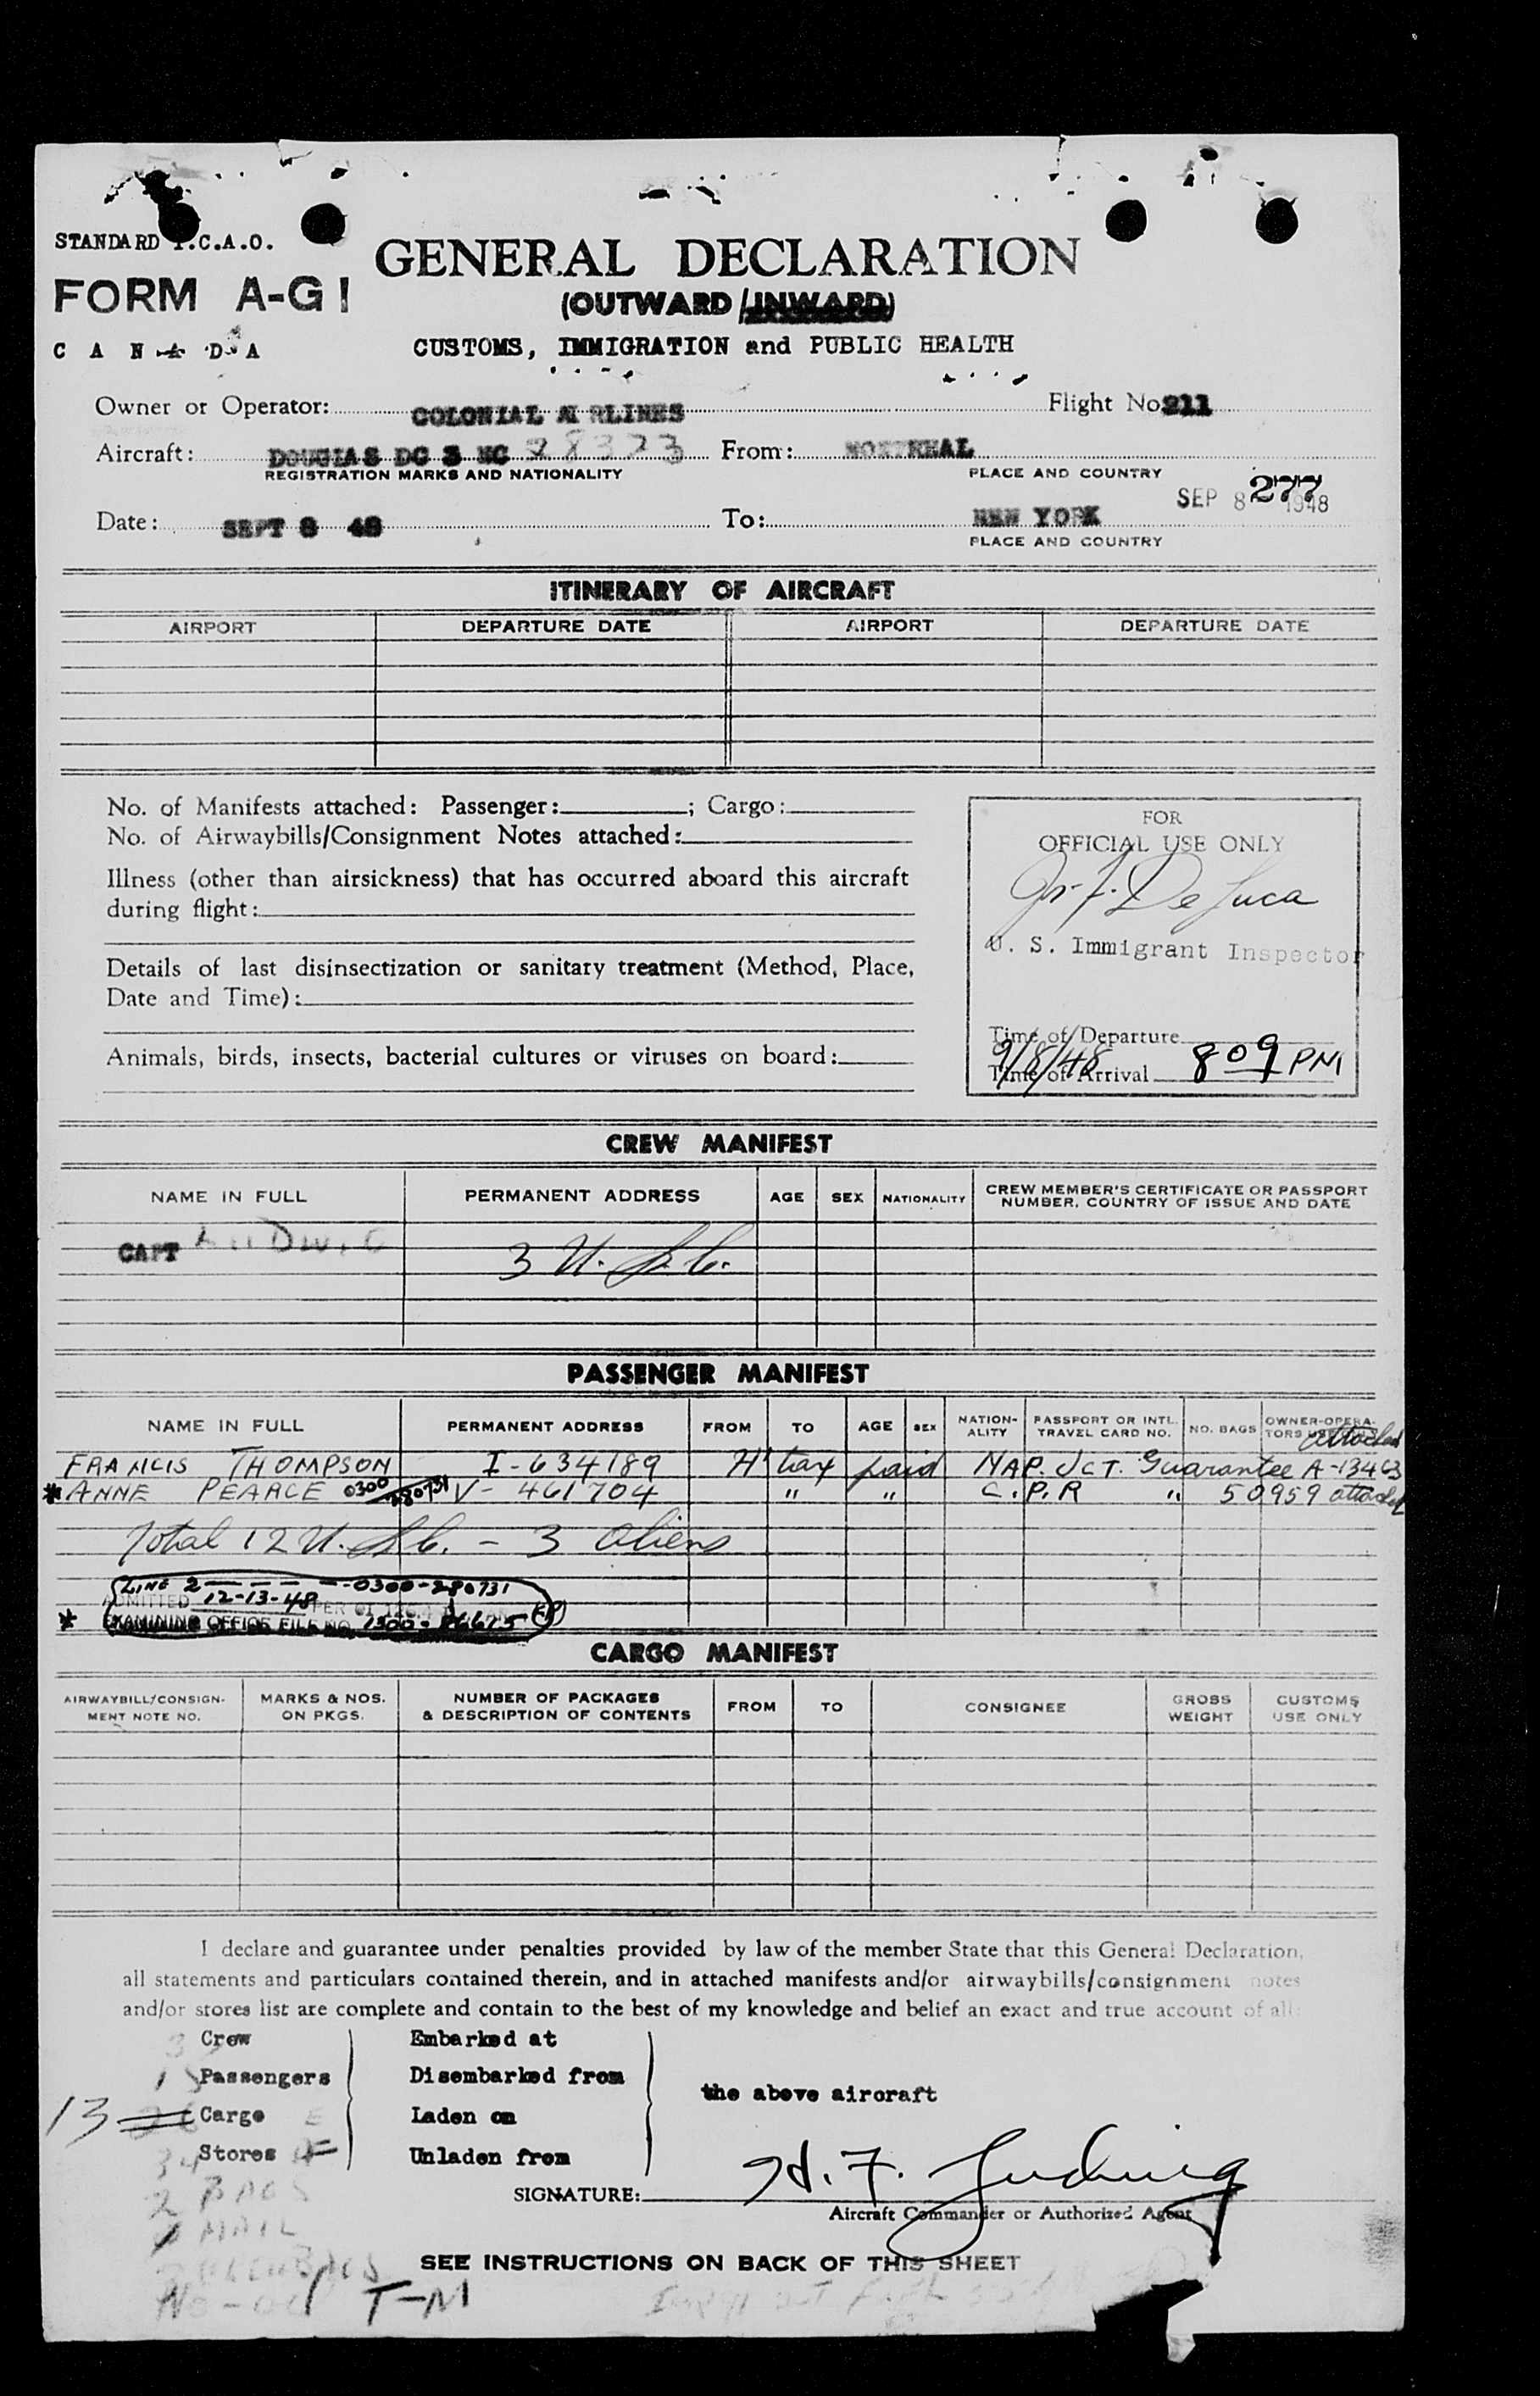 STANDARD I.C.A.O.
FORM A-G1
CANADA
GENERAL DECLARATION
(OUTWARD/INWARD)
CUSTOMS, IMMIGRATION and PUBLIC HEALTH
Owner or Operator: COLONIAL AIRLINES Flight No 211
Aircraft: DOUGLAS DC 3 NC 28323 From: MONTREAL
REGISTRATION MARKS AND NATIONALITY PLACE AND COUNTRY
SEP 8 1948 277
Date: SEPT 8 48 To: NEW YORK
PLACE AND COUNTRY
ITINERARY OF AIRCRAFT
AIRPORT DEPARTURE DATE AIRPORT DEPARTURE DATE
No. of Manifests attached: Passenger: ; Cargo:
No. of Airwaybills/Consignment Notes attached:
Illness (other than airsickness) that has occurred aboard this aircraft
during flight:
Details of last disinsectization or sanitary treatment (Method, Place,
Date and Time):
Animals, birds, insects, bacterial cultures or viruses on board:
FOR
OFFICIAL USE ONLY
De Luca
U. S. Immigrant Inspector
Time of Departure
9/8/48
Time of Arrival 8 09 PM
CREW MANIFEST
NAME IN FULL PERMANENT ADDRESS AGE SEX NATIONALITY CREW MEMBER'S CERTIFICATE OR PASSPORT
NUMBER, COUNTRY OF ISSUE AND DATE
CAPT LUDWIG 3 U.S.C.
PASSENGER MANIFEST
NAME IN FULL PERMANENT ADDRESS FROM TO AGE SEX NATION-ALITY PASSPORT OR INTL. TRAVEL CARD NO. NO. BAGS OWNER-OPERA-TORS USE
attached
FRANCIS THOMPSON I-634189 H' tax paid NAP. JCT. Guarantee A-13463
* ANNE PEARCE 0300/280731 V-461704 " " C.P.R " 50959 attached
Total 12 U.S.C. - 3 Aliens
LINE 2 - - - - 0300-280731
ADMITTED 12-13-48 PER
* EXAMINING OFFICE FILE NO. 1300-86675
CARGO MANIFEST
AIRWAYBILL/CONSIGN-MENT NOTE NO. MARKS & NOS. ON PKGS. NUMBER OF PACKAGES & DESCRIPTION OF CONTENTS FROM TO CONSIGNEE GROSS WEIGHT CUSTOMS USE ONLY
I declare and guarantee under penalties provided by law of the member State that this General Declaration,
all statements and particulars contained therein, and in attached manifests and/or airwaybills/consignment notes
and/or stores list are complete and contain to the best of my knowledge and belief an exact and true account of all:
3 Crew Embarked at
15 Passengers Disembarked from
the above aircraft
13 Cargo Laden on
Stores Unladen from
SIGNATURE: H. F. Ludwig
Aircraft Commander or Authorized Agent
BAGS
MAIL
SEE INSTRUCTIONS ON BACK OF THIS SHEET
T-M